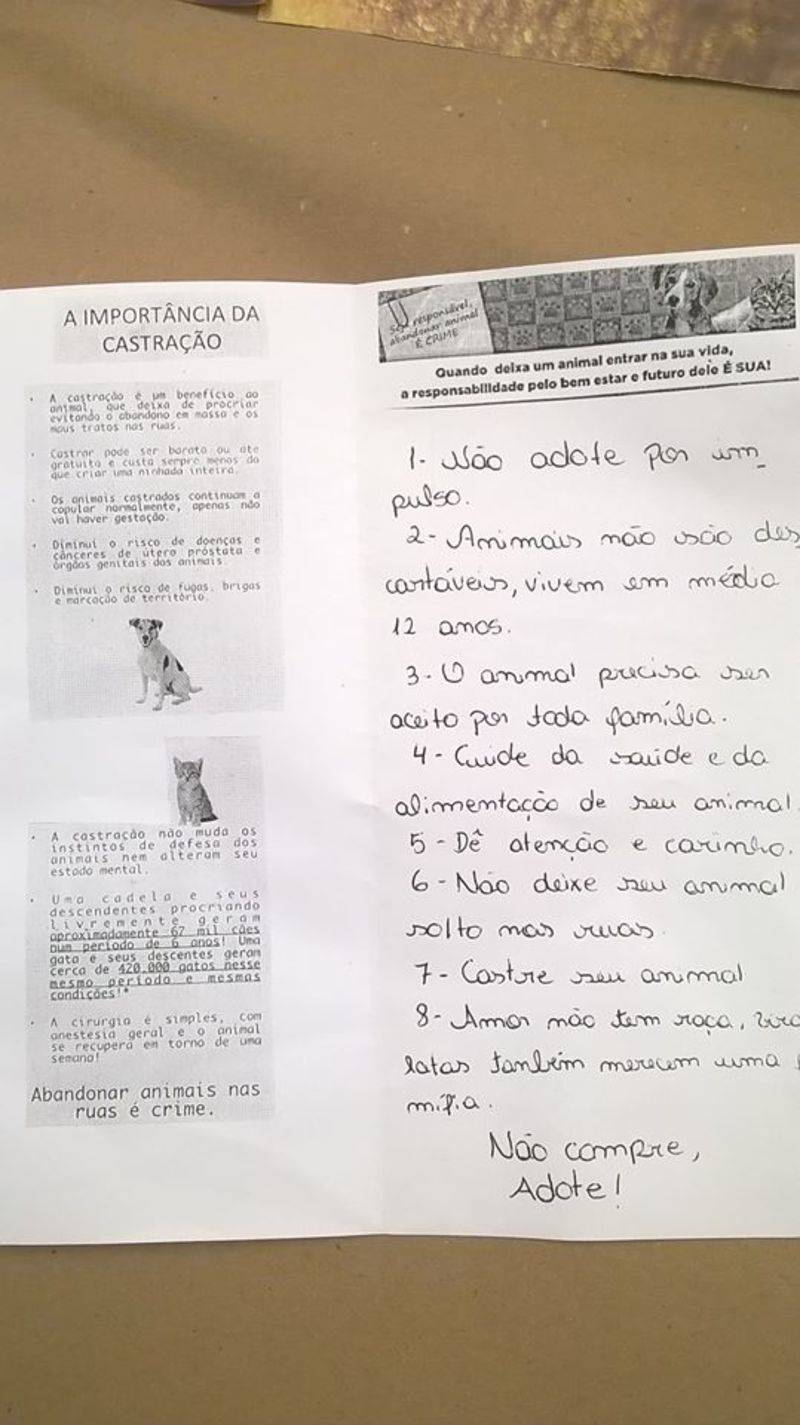 A IMPORTÂNCIA DA
CASTRAÇÃO
• A castração é um benefício ao
animal, que deixa de procriar
evitando o abandono em massa e os
maus tratos nas ruas.
• Castrar pode ser barato ou até
gratuito e custa sempre menos do
que criar uma ninhada inteira.
• Os animais castrados continuam a
copular normalmente, apenas não
vai haver gestação.
• Diminui o risco de doenças e
cânceres de útero próstata e
órgãos genitais dos animais.
• Diminui o risco de fugas, brigas
e marcação de território.
• A castração não muda os
instintos de defesa dos
animais nem alteram seu
estado mental.
• Uma cadela e seus
descendentes procriando
livremente geram
aproximadamente 67 mil cães
num período de 6 anos! Uma
gata e seus descentes geram
cerca de 420.000 gatos nesse
mesmo período e mesmas
condições!*
• A cirurgia é simples, com
anestesia geral e o animal
se recupera em torno de uma
semana!
Abandonar animais nas
ruas é crime.
responsável,
abandonar animal
É CRIME
Quando deixa um animal entrar na sua vida,
a responsabilidade pelo bem estar e futuro dele É SUA!
1- Não adote por im_
pulso.
2- Animais não são des
cartáveis, vivem em média
12 anos.
3- O animal precisa ser
aceito por toda família.
4- Cuide da saúde e da
alimentação de seu animal.
5- Dê atenção e carinho.
6- Não deixe seu animal
solto nas ruas.
7- Castre seu animal
8- Amor não tem raça, vira
latas também merecem uma
mília.
Não compre,
Adote!